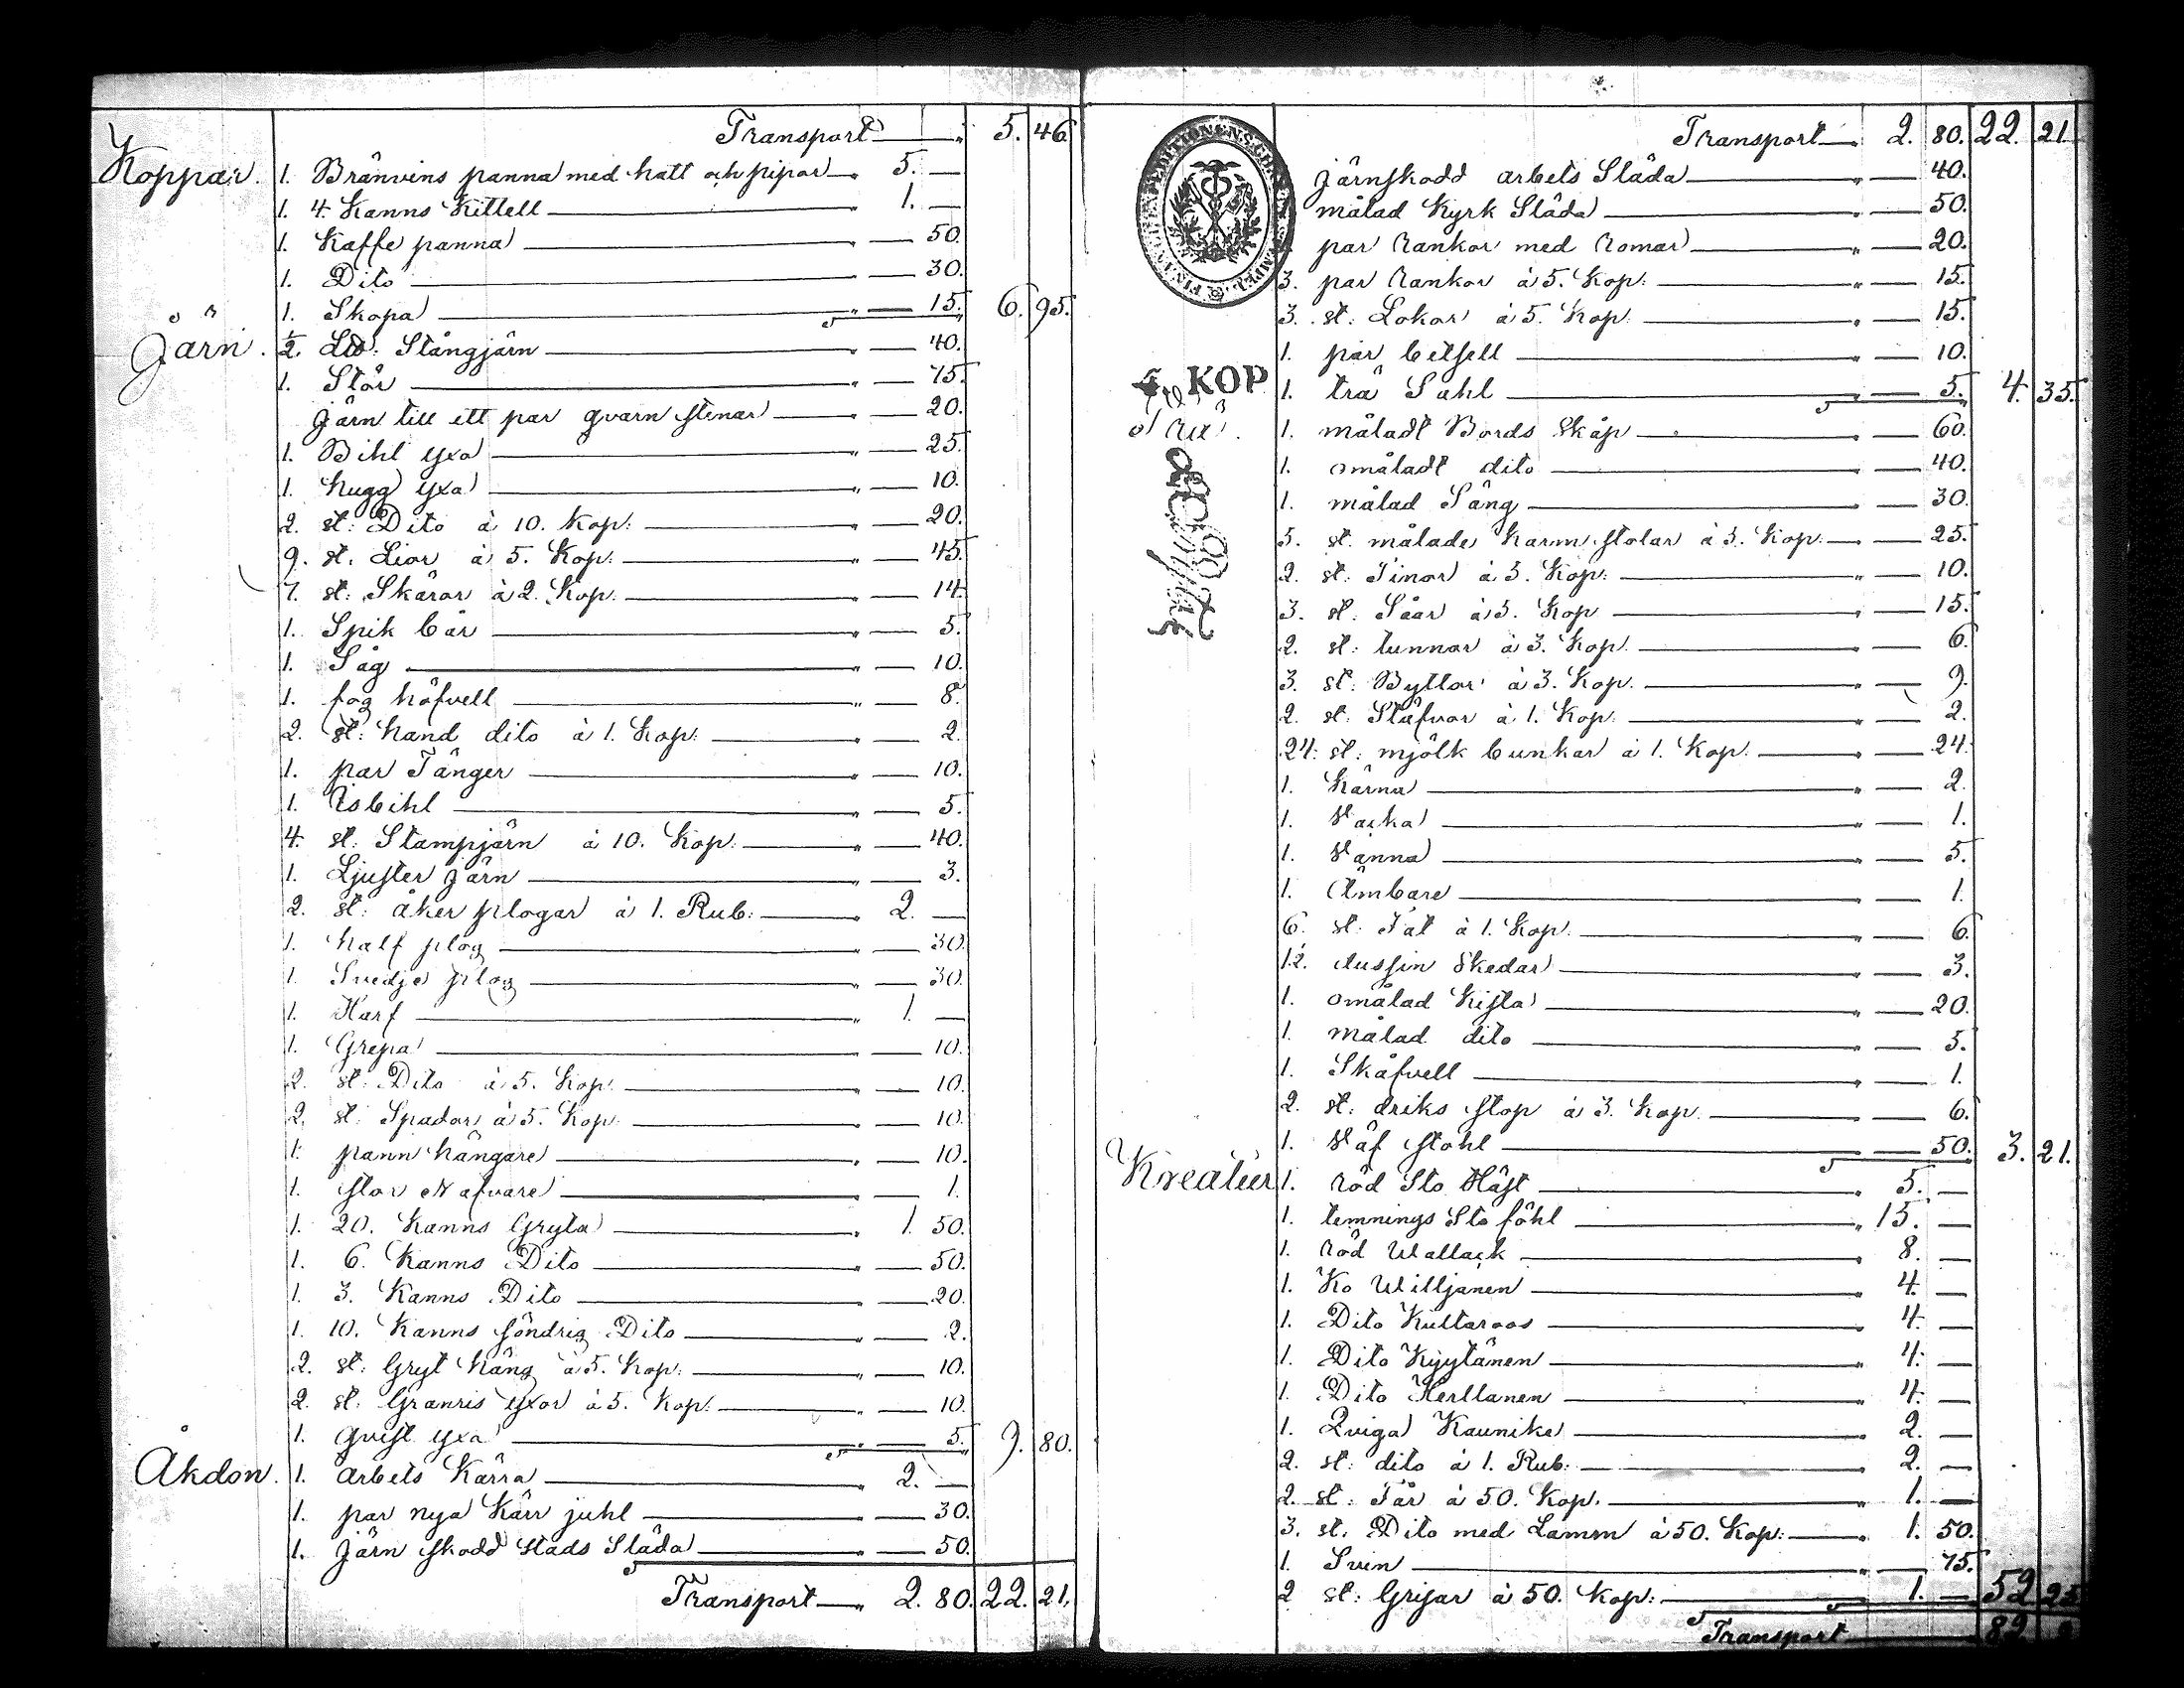 Transport 5. 46
Koppar. 1. Bränvins panna med hatt och pipor 5. —
1. 4. Kanns Kittell 1. —
1. Kaffe panna — 50.
1. Dito — 30.
1. Skopa — 15. 6. 95.
Järn. 1/2 Stångjärn — 40.
1. Stör — 75.
Järn till ett par qvarn stenar — 20.
1. Bihl yxa — 25.
1. hugg yxa — 10.
2. st: Dito à 10. Kop: — 20.
9. st. Lior à 5. Kop: — 45.
7. st: Skäror à 2. Kop: — 14.
1. Spik bår — 5.
1. Såg — 10.
1. fog höfvell — 8.
2. st: hand dito à 1. Kop: — 2.
1. par Tänger — 10.
1. Isbihl — 5.
4. st: Stampjärn à 10. Kop: — 40.
1. Ljuster järn — 3.
2. st: åker plogar à 1. Rub: 2. —
1. half plog — 30.
1. Svedje plog — 30.
1. Harf 1. —
1. Grepa — 10.
2. st: Dito à 5. Kop: — 10.
2. st: Spadar à 5. Kop: — 10.
1. pann hängare — 10.
1. stor Nafvare — 1.
1. 20. Kanns Gryta 1. 50.
1. 6. Kanns Dito — 50.
1. 3. Kanns Dito — 20.
1. 10. Kanns söndrig Dito — 2.
2. st: Gryt häng à 5. Kop: — 10.
2. st: Granris yxor à 5. Kop: — 10.
1. qvist yxa — 5. 9. 80.
Åkdon. 1. arbets Kärra 2. —
1. par nya Kärr juhl — 30.
1. järn skodd stads Släda — 50.
Transport 2. 80. 22. 21.
Transport 2. 80. 22. 21.
järnskodd arbets Släda — 40.
målad Kyrk Släda — 50.
par Rankor med Romar — 20.
3. par Rankor à 5. Kop: — 15.
3. st: Lokor à 5. Kop: — 15.
1. par betsell — 10.
KOP
1. trä Sahl — 5. 4. 35.
Trä. 1. måladt Bords skåp — 60.
1. omåladt dito — 40.
1. målad Säng — 30.
5. st. målade karm stolar à 5. Kop: — 25.
2. st: Tinor à 5. Kop: — 10.
3. st: Såar à 5. Kop — 15.
2. st: tunnor à 3. Kop. — 6.
3. st: Byttor à 3. Kop. — 9.
2. st: Stäfvor à 1. Kop: — 2.
24. st: mjölk bunkar à 1. Kop: — 24.
1. Kärna — 2.
1. Vacka — 1.
1. Vanna — 5.
1. Ämbare — 1.
6. st: Fat à 1. Kop: — 6.
1 1/2. dussin Skedar — 3.
1. omålad Kista — 20.
1. målad dito — 5.
1. Skäfvell — 1.
2. st: driks stop à 3. Kop. — 6.
1. Väf stohl — 50. 3. 21.
Kreatur 1. Röd Sto Häst 5. —
1. temnings Sto föhl 15. —
1. Röd Wallack 8. —
1. Ko Williänen 4. —
1. Dito Kultaroos 4. —
1. Dito Kyytänen 4. —
1. Dito Herttanen 4. —
1. Qviga Kaunike 2. —
2. st: dito à 1. Rub: 2. —
2. st: Får à 50. Kop. 1. —
3. st. Dito med Lamm à 50. Kop: 1. 50.
1. Svin — 75.
2 st: Grisar à 50. Kop: 1. — 52 25
Transport 82